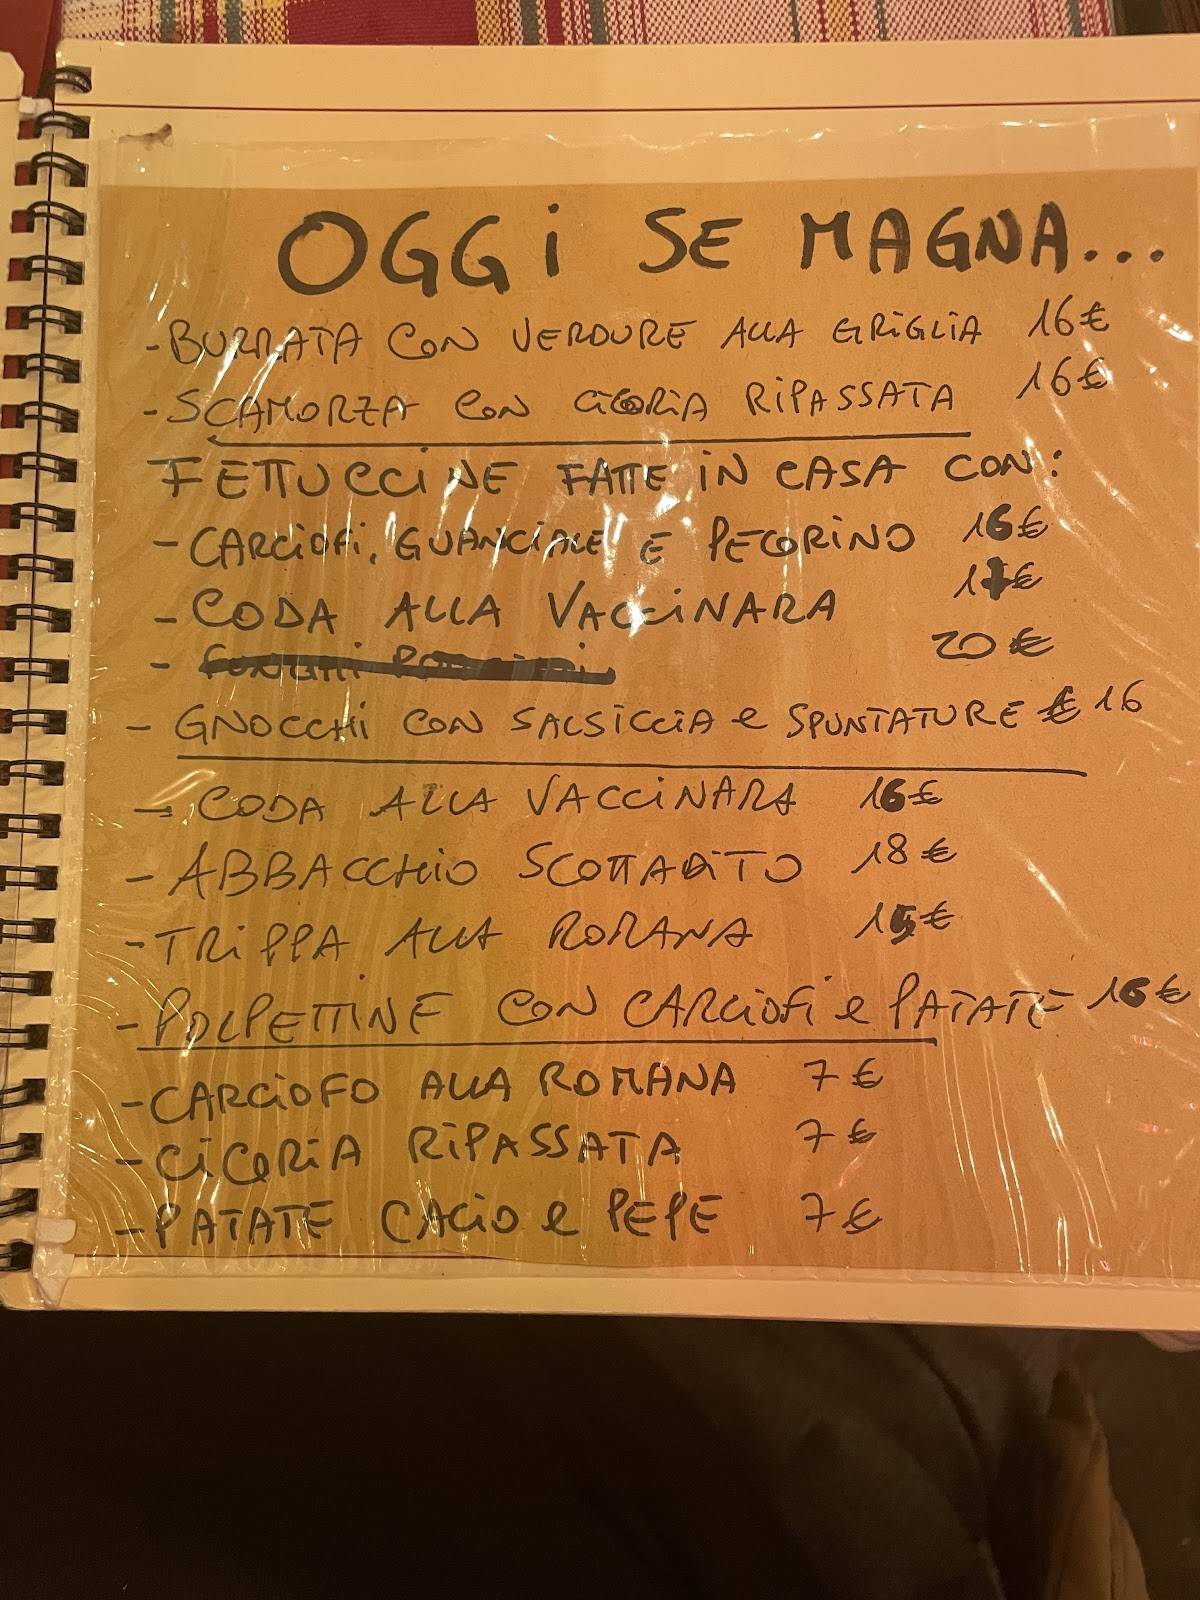 OGGi SE MAGNA...
- BURRATA CON VERDURE ALLA GRiGLIA 16€
- SCAMORZA CON CiCORiA RiPASSATA 16€
FETTUCCiNE FATTE iN CASA CON:
- CARCiOFi, GUANCiALE E PECORiNO 16€
- CODA ALLA VACCiNARA 17€
- 20€
- GNOCCHi CON SALSiCCiA e SPUNTATURE €16
- CODA ALLA VACCiNARA 16€
- ABBACCHiO SCOTTADiTO 18€
- TRiPPA ALLA ROMANA 15€
- POLPETTiNE CON CARCiOFi e PATATE 16€
- CARCiOFO ALLA ROMANA 7€
- CiCORiA RiPASSATA 7€
- PATATE CACiO e PEPE 7€